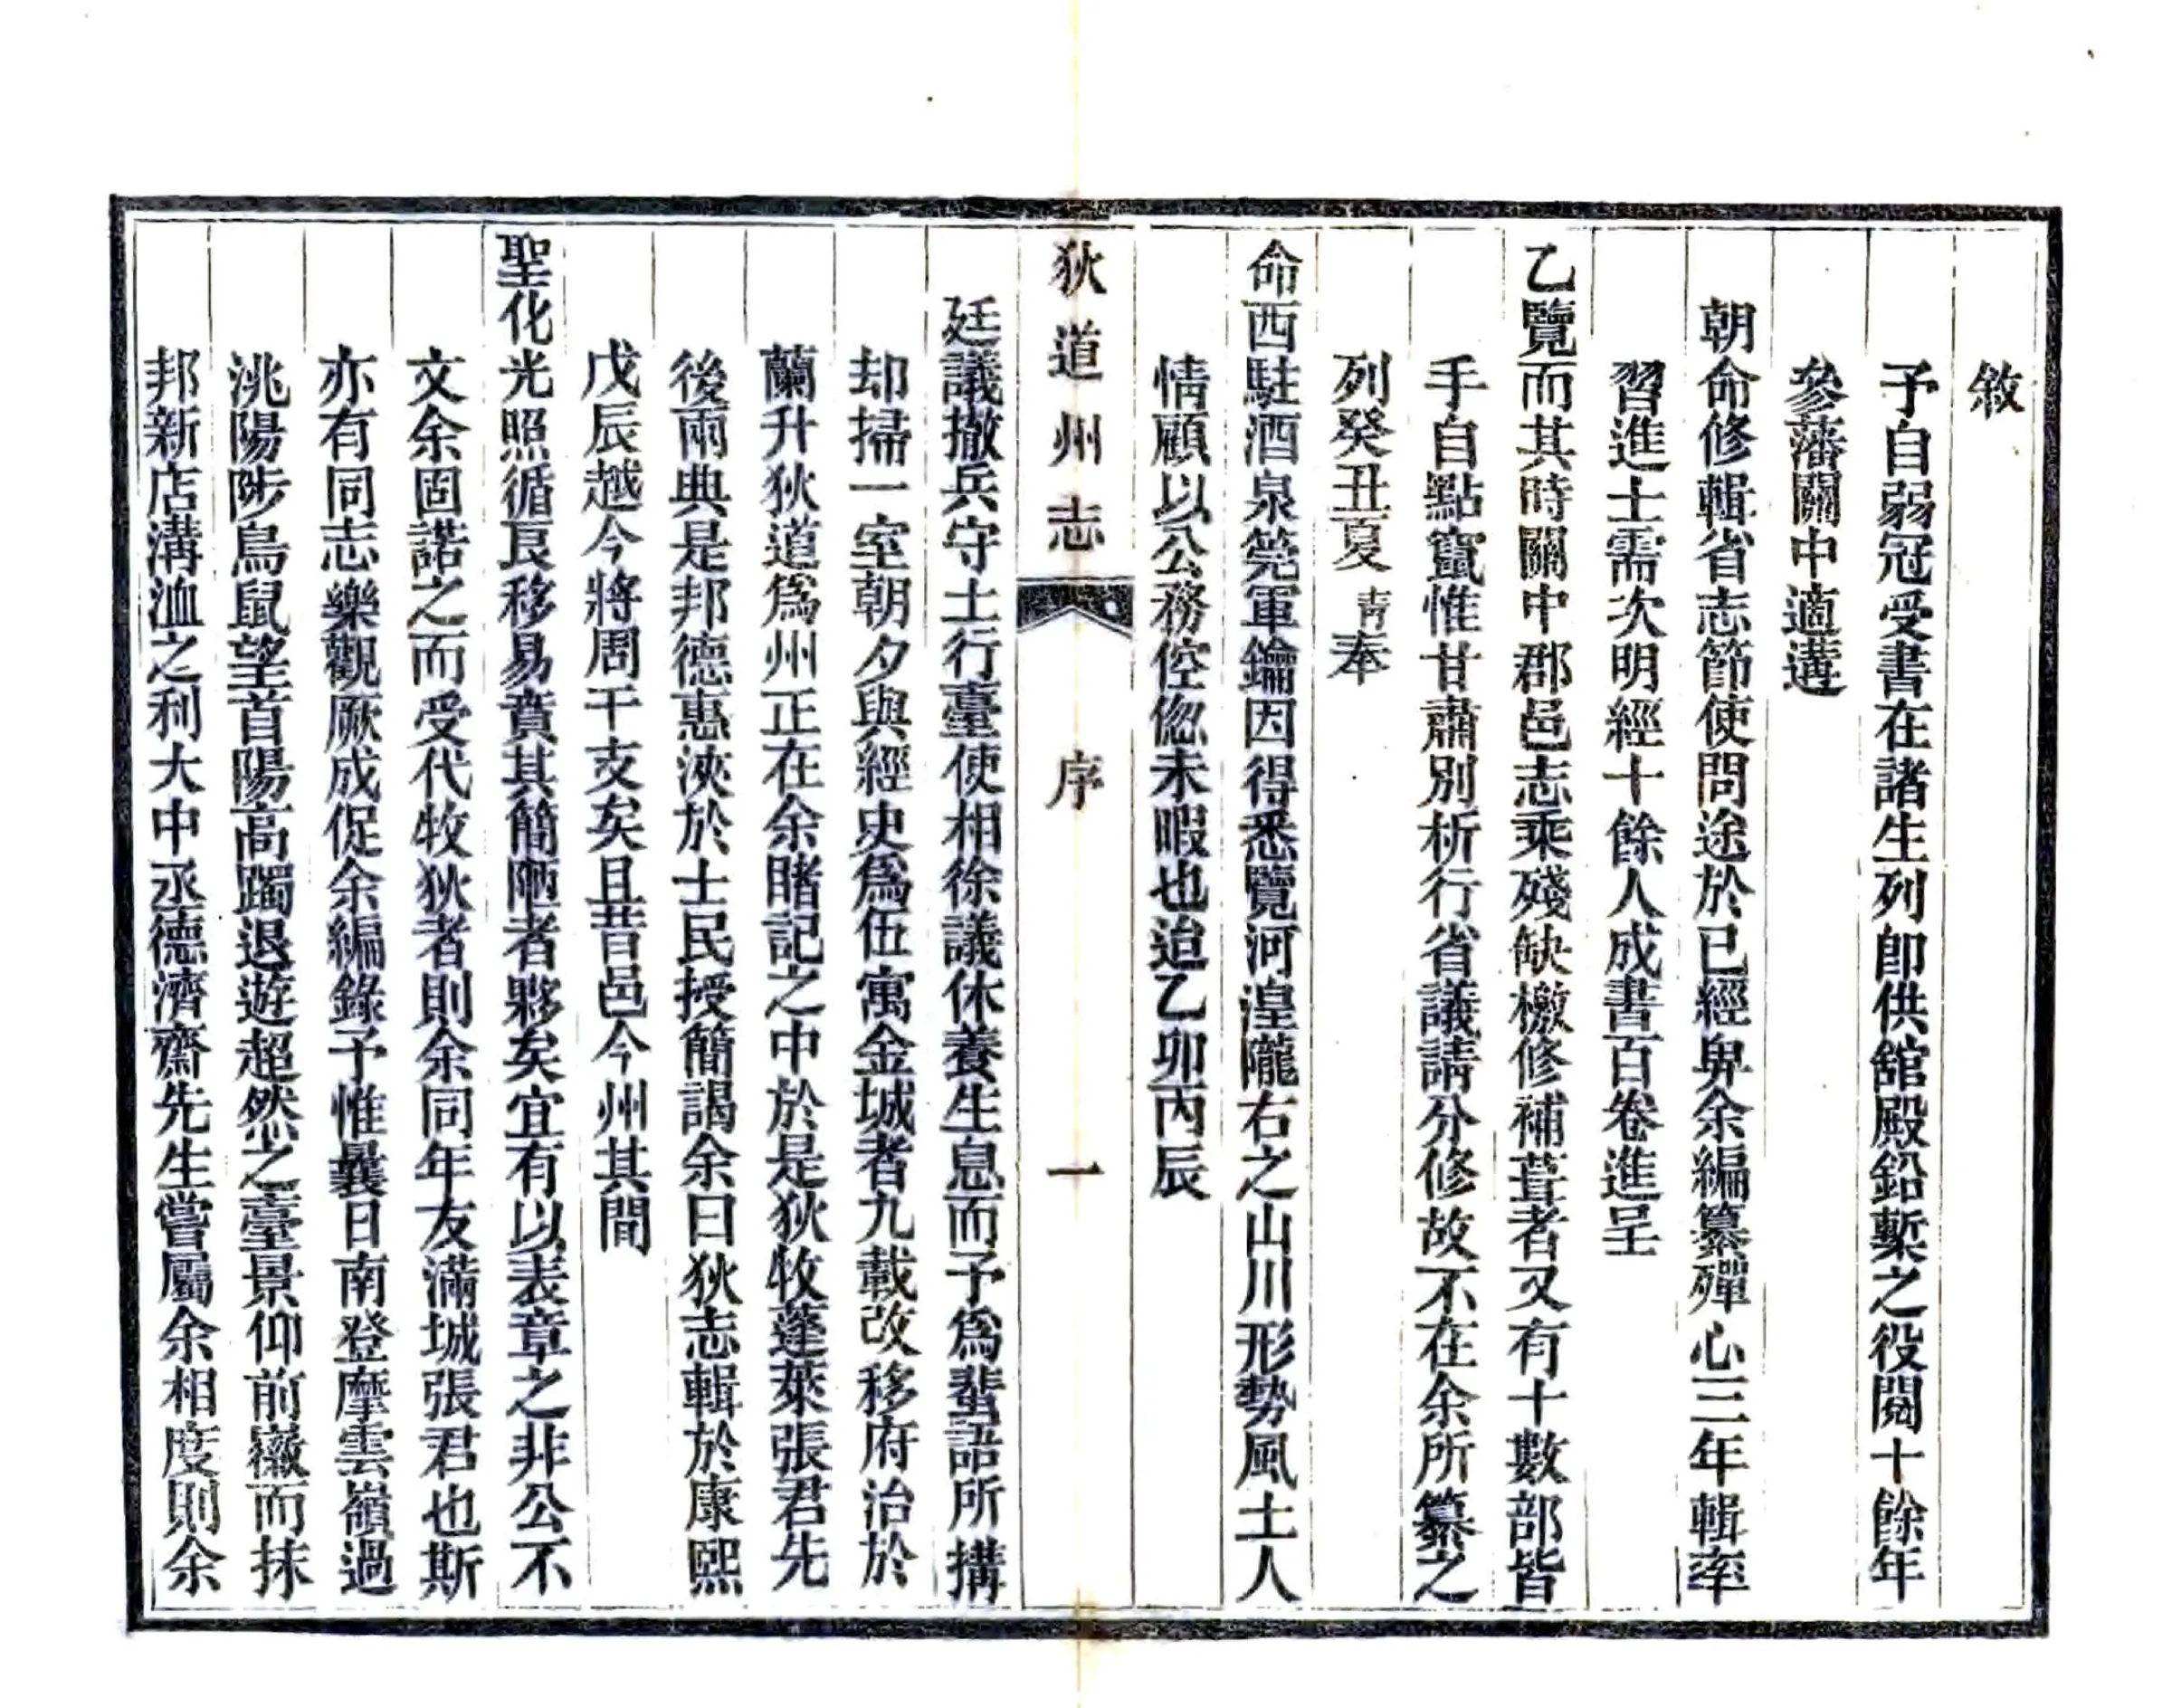 敘
予自弱冠受書在諸生列即供館殿鉛槧之役閱十餘年
參藩關中適遘
朝命修輯省志節使問途於已經畀余編纂殫心三年輯率
習進士需次明經十餘人成書百卷進呈
乙覽而其時關中郡邑志乘殘缺檄修補葺者又有十數部皆
手自點竄惟甘肅別析行省議請分修故不在余所纂之
列癸丑夏靑奉
命西駐酒泉筦軍鑰因得悉覽河湟隴右之山川形勢風土人
情顧以公務倥傯未暇也迨乙卯丙辰
狄道州志 序 一
廷議撤兵守土行臺使相徐議休養生息而予為蜚語所搆
却掃一室朝夕與經史為伍寓金城者九載改移府治於
蘭升狄道為州正在余睹記之中於是狄牧蓬萊張君先
後兩典是邦德惠浹於士民授簡謁余曰狄志輯於康熙
戊辰越今將周干支矣且昔邑今州其間
聖化光照循良移易賁其簡陋者夥矣宜有以表章之非公不
文余固諾之而受代牧狄者則余同年友滿城張君也斯
亦有同志樂觀厥成促余編錄予惟曩日南登摩雲嶺過
洮陽陟鳥鼠望首陽高躅退遊超然之臺景仰前徽而抹
邦新店溝洫之利大中丞德濟齋先生嘗屬余相度則余